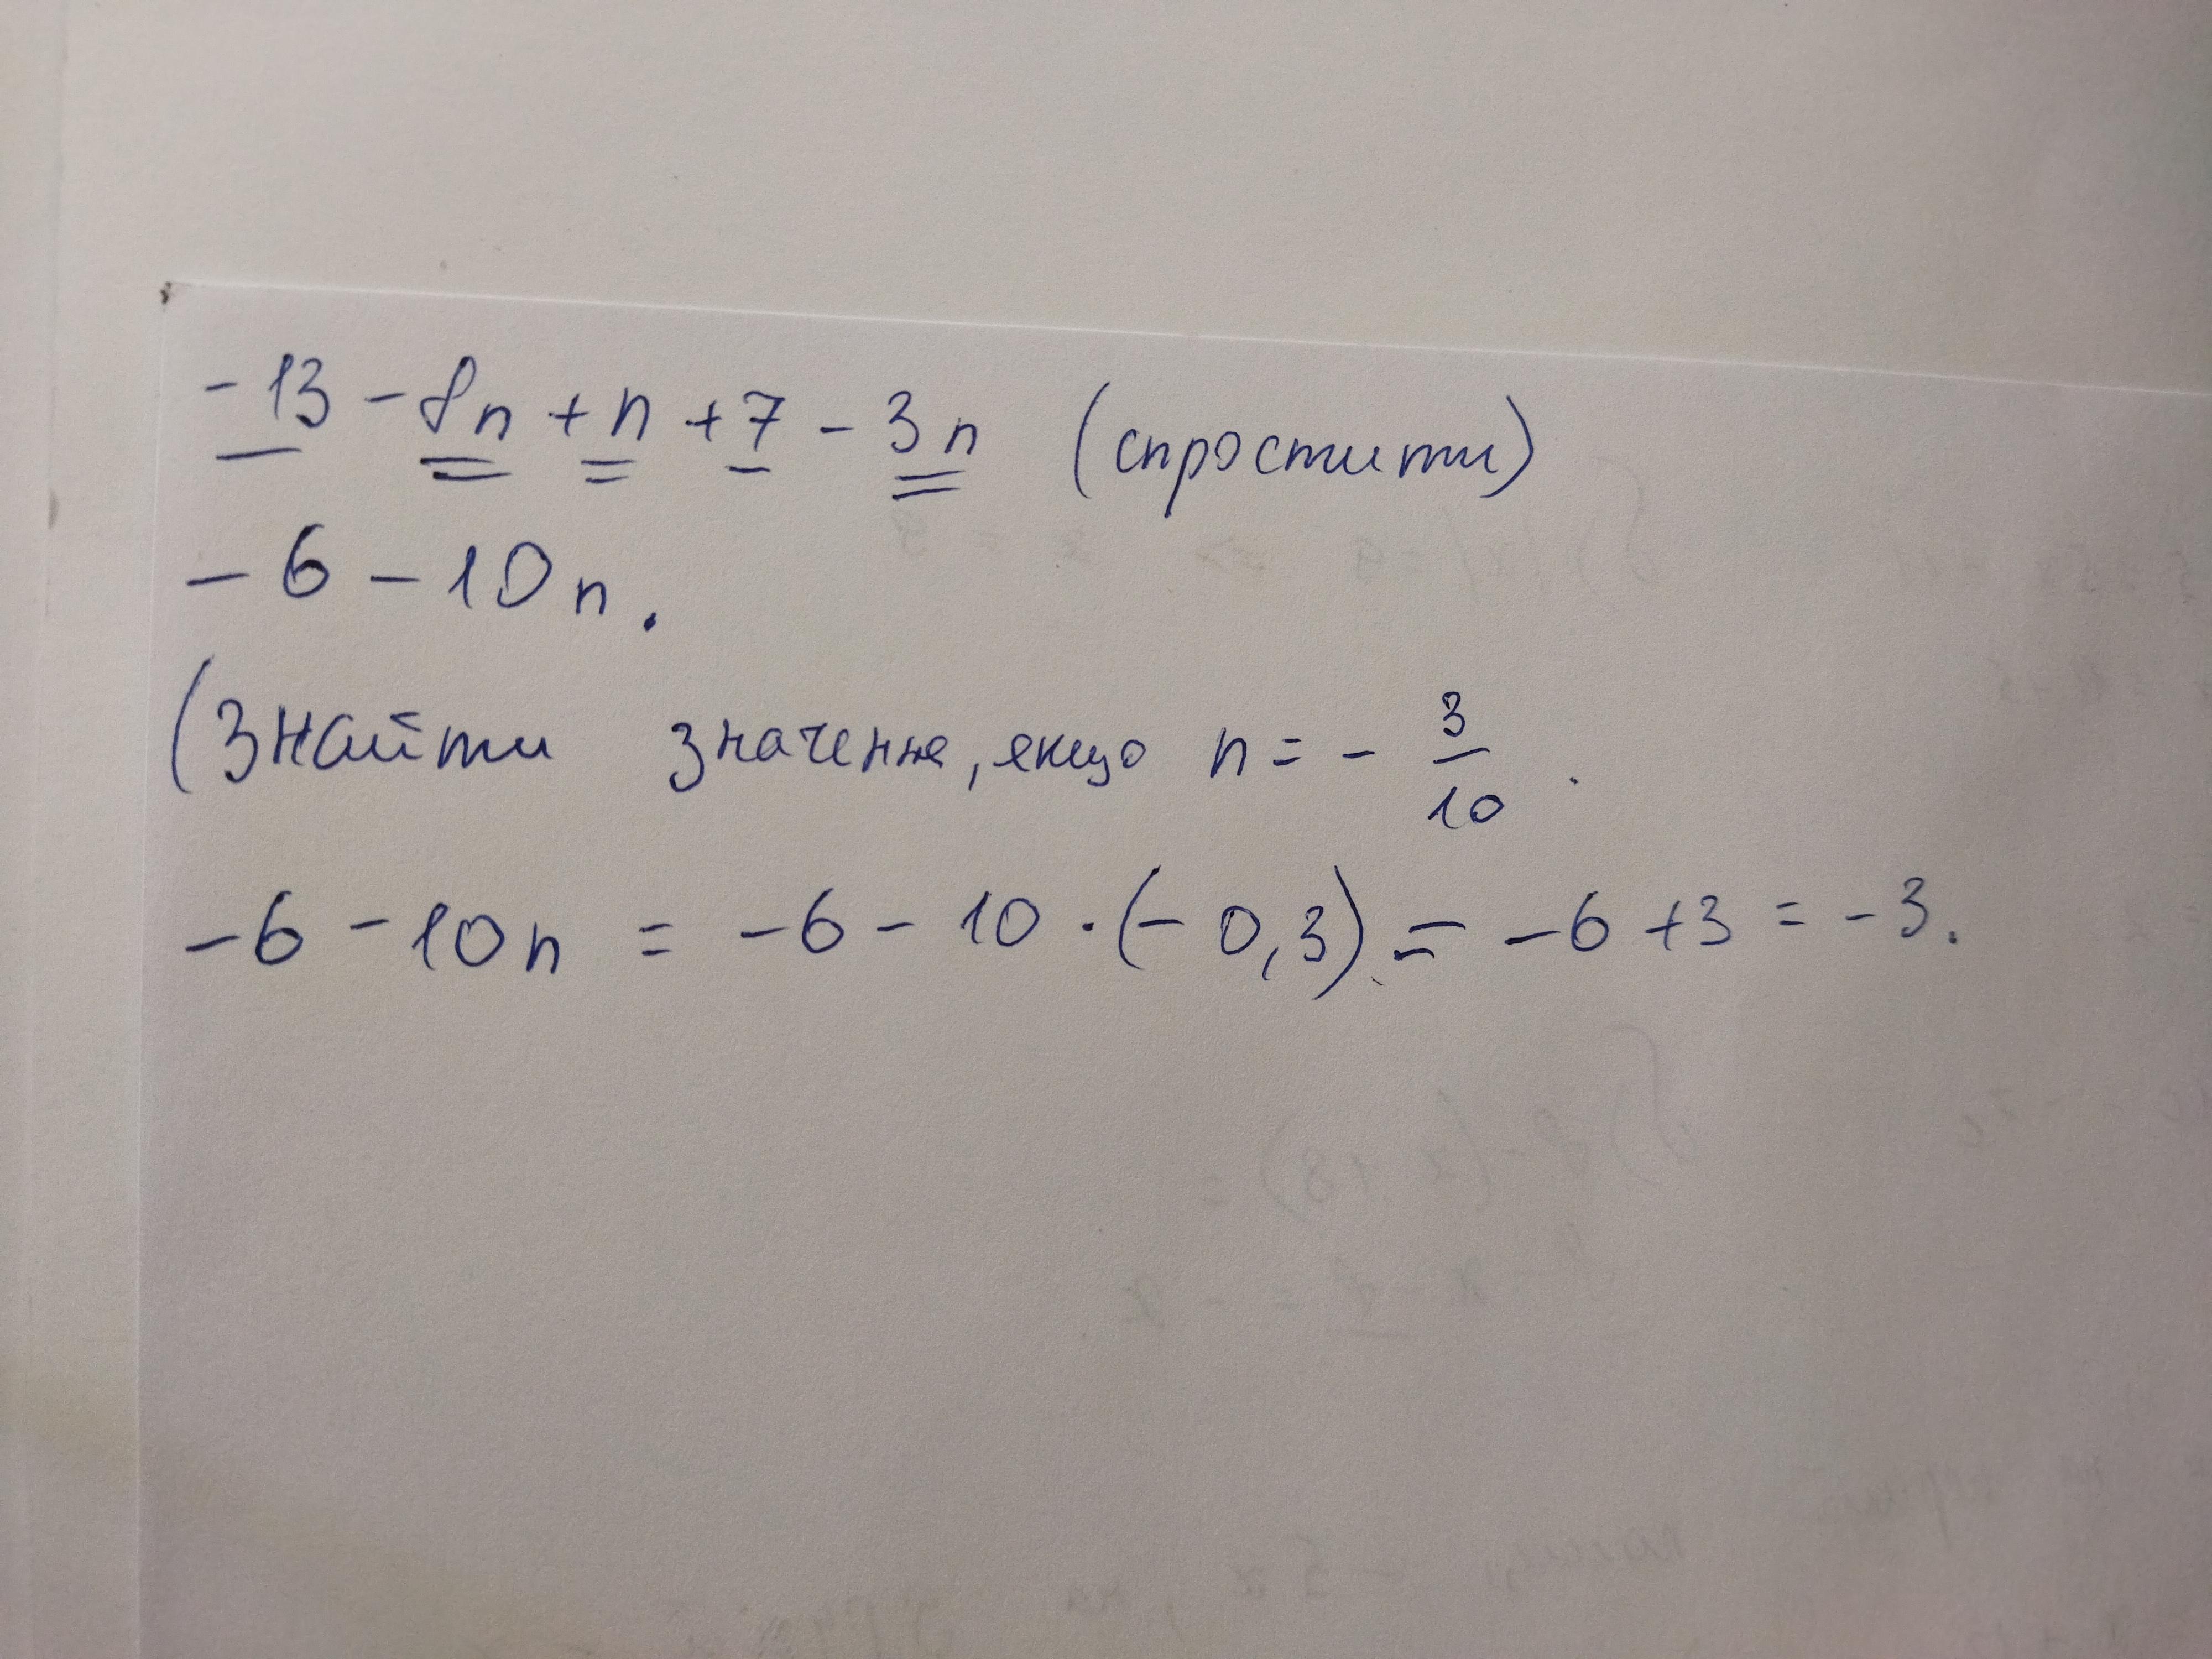 -13 - 8n + n + 7 - 3n (спростити)
- 6 - 10n.
(Знайти значення, якщо n = - 3/10.
-6 - 10n = -6 - 10 · (- 0,3) = -6 + 3 = -3.